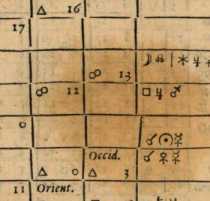 △ 16
17
☽ ☊ ✶ ♃
☍ 13
☍ 12 □ ♃ ♂
0
☌ ☉ ☿
Occid. ☌ ♀ ☿
△ 0 △ 3
11 Orient.